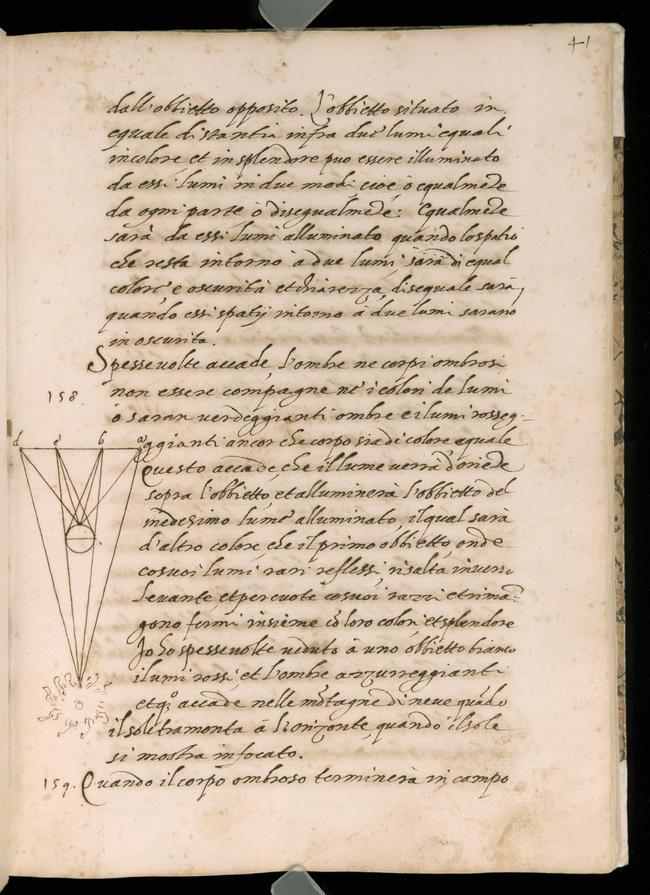 41
dall'obbietto opposito. L'obbietto situato in
equale distantia infra due lumi equali
in colore et in splendore puo essere illuminato
da essi lumi in due modi cioè ò equalmēte
da ogni parte ò disegualmēte: Equalmēte
sarà da essi lumi alluminato quando lo spatio
che resta intorno à due lumi sarà di equal
colore e oscurità et chiarezza, disequale sarà,
quando essi spatij intorno à due lumi sarano
in oscurita.
Spesse volte accade, l'ombre ne corpi ombrosi
158.
non essere compagne ne' i colori de lumi
ò saran verdeggianti ombre e i lumi rosseg-
d e b a
ggianti ancor che corpo sia di colore equale
Questo accade, che il lume verrà d'oriēte
sopra l'obbietto, et alluminerà l'obbietto del
medesimo lume alluminato, il qual sarà
d'altro colore che il primo obbietto, onde
co suoi lumi rari reflessi risalta inverso
Levante, et percuote co suoi razzi et rima-
gono fermi insieme cō loro colori et splendore
Jo ho spesse volte veduto à uno obbietto bianco
i lumi rossi et l'ombre azzurreggianti
et qº accade nelle mōtagne di neve quādo
il sol tramonta à l'orizonte, quando il sole
si mostra infocato.
159. Quando il corpo ombroso terminerà in campo